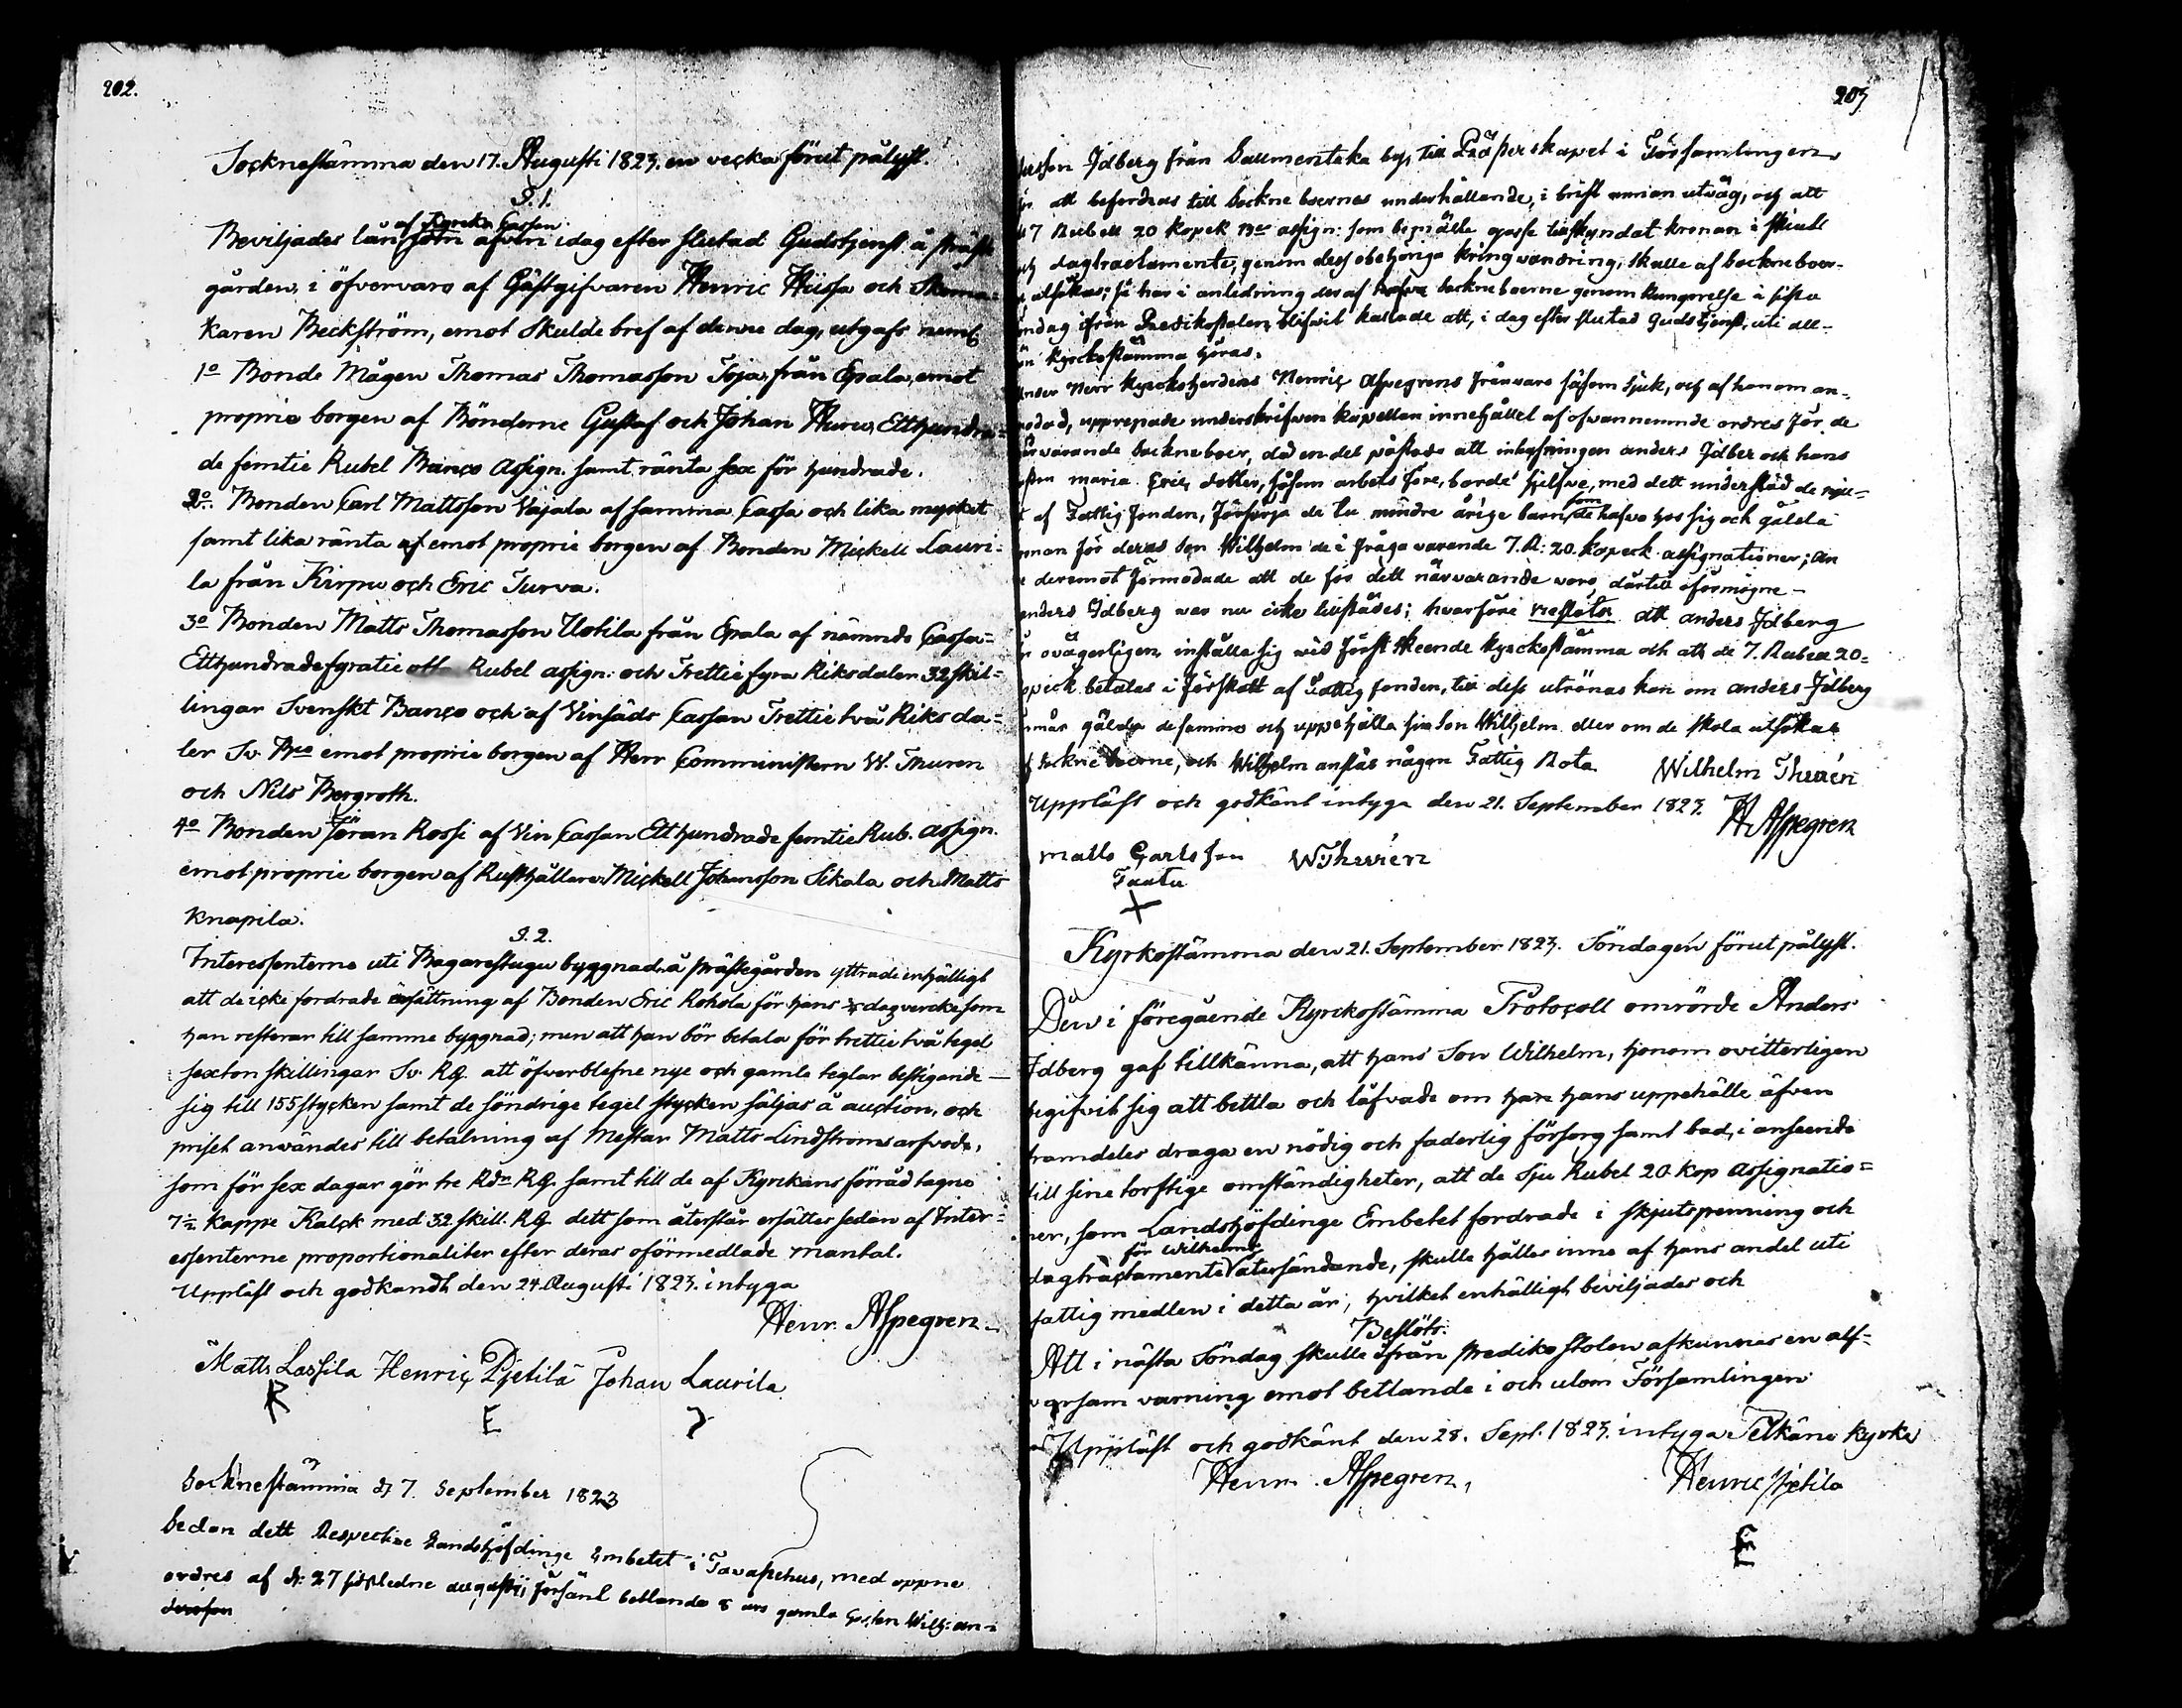 202.
Socknestämma den 17. Augusti 1823. en vecka förut pålyst.
§. 1.
af Kyrcko Cassen
Beviljades lån som äfven idag efter slutad Gudstjenst å präste
gården, i öfvervaro af Gästgifvaren Henric Hiissa och Skoma-
karen Beckström, emot Skuldebref af denne dag, utgafs neml.
1o Bonde Mågen Thomas Thomasson Toja från Epala, emot
proprie borgen af Bönderne Gustaf och Johan Huru, Etthundra-
de femtie Rubel Banco Assign. samt ränta sex för hundrade.
2o Bonden Carl Mattsson Vajala af samma Cassa och lika mycket
samt lika ränta emot proprie borgen af Bonden Mickell Lauri-
la från Kirpu och Eric Turva.
3o Bonden Matts Thomasson Uotila från Epala af nämnde Cassa-
Etthundradefyratie otta Rubel assign: och Trettie fyra Riksdaler 32 skil-
lingar Svenskt Banco och af Vinsäds Cassan Trettie två Riksda-
ler Sv. Bco emot proprie borgen af Herr Comministern W. Thuren
och Nils Bergroth.
4o Bonden Jöran Rossi af Vin Cassan Etthundrade femtie Rub. assign.
emot proprie borgen af Rusthållaren Mickell Johansson Sikala och Matts
Knapila.
§. 2.
Interessenterne uti Bagarestugu byggnad å prästegården yttrade enhälligt
att de icke fordrade ersättning af Bonden Eric Rohola för hans dagsvercke som
han resterar till samme byggnad; men att han bör betala för trettie två tegel
sexton skillingar Sv. RG. att öfverblefne nye och gamle teglar bestigande
sig till 155 stycken samt de söndrige tegel stycken säljas å auction, och
priset användes till betalning af Mestar Matts Lindströms arfvode,
som för sex dagar gör tre Rdr RG. samt till de af Kyrckans förråd tagne
7½ kappe Kalck med 32 skill. RG. dett som återstår ersättes sedan af Inter-
essenterne proportionaliter efter deras oförmedlade mantal.
Uppläst och godkändt den 24 Augusti 1823. intyga
Henr. Aspegren
Matts Lassila Henric Pjetilä Johan Laurila
SockneStämma d. 7. September 1823
Sedan dett Respective Landshöfdinge Embetet i Tavastehus, med öppne
ordres af d: 27 sistledne augustii, försänt bettlande 8 års gamle Gossen Wilh: An-
dersson
203
dersson Idberg från Saumentaka by, till Prästerskapet i Församlingen
för att befordras till Sockne boernes underhållande, i brist annan utväg, och att
de 7 Rubell 20 kopek Bco assign: som bemälte gosse tillskyndat kronan i skiuts
och dagtraclamente, genom dess obehöriga kringvandring, skulle af Sockneboer-
ne utsökas; så har i anledning deraf Sockneboerne genom kungörelse å sista
söndag ifrån Predikostolen, blifvit kallade att, i dag efter slutad Gudstjenst, uti all-
män kyrckostämma höras.
Under Herr Kyrckoherdens Henric Aspegrens frånvaro såsom Sjuk, och af honom an-
modad, upprepade underskrifven kapellan innehållet af ofvannemnde ordres för de
närvarande Sockneboer, då en del påstods att inhysningen anders Idberg och hans
hustru maria Erics dotter, såsom arbets före, borde sjelfve, med dett understöd de nju-
tit af Fattig fonden, försörja de tu mindre årige barn som de hafva hos sig och gälda
kronan för deras Son Wilhelm de i fråga varende 7. R: 20. kopeck assignationer; an
dre deremot förmodade att de för dett närvarande voro därtill oförmögne
anders Idberg var nu icke tillstädes; hvarföre restolts att anders Idberg
bör ovägerligen inställa sig wid först Skeende Kyrckostämma och att de 7. Rubell 20-
kopeck betalas i förskott af Fattig fonden, till dess utrönas kan om anders Idberg
förmår gälda desamma och uppehålla sin Son Wilhelm eller om de skola utsökas
af Sockneboerne, och Wilhelm anslås någon Fattig Rota. Wilhelm Thurén
Uppläst och godkänt intyga den 21. September 1823. H. Aspegren
matts Carlsson WThurén
Tantu
Kyrkostämma den 21. September 1823. Söndagen förut pålyst.
Den i föregående Kyrckostämma Protocoll omrörde Anders
Idberg gaf tillkänna, att hans Son Wilhelm, honom ovitterligen
begifvit sig att bettla och låfvade om hans uppehälle äfven
framdeles draga en nödig och faderlig försorg samt bad, i anseende
till sine torftige omständigheter, att de Sju Rubel 20 kop assignatio-
ner, som Landshöfdinge Embetet fordrade i skjutspenning och
för Wilhelms
dagtractamente återsändande, skulle hålles inne af hans andel uti
fattig medlen i detta år; hvilket enhälligt beviljades och
Beslöts.
Att i nästa Söndag skulle ifrån predikostolen afkunnas en alf-
varsam varning emot bettlande i och utom Församlingen
Uppläst och godkänt den 28. Sept. 1823. intyga Pelkäne kyrka
Henr. Aspegren, Henric Pjetila